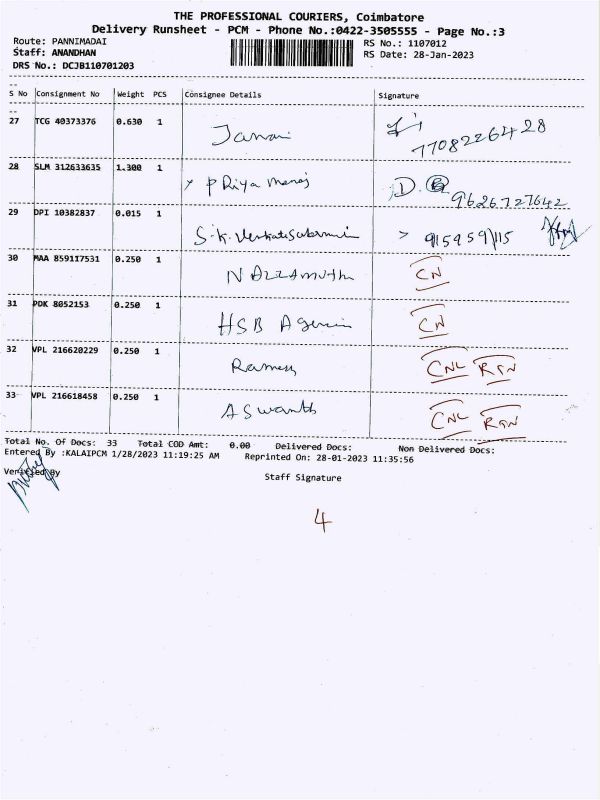 THE PROFESSIONAL COURIERS, Coimbatore
Delivery Runsheet - PCM - Phone No.:0422-3505555 - Page No.:3
Route: PANNIMADAI RS No.: 1107012
Staff: ANANDHAN RS Date: 28-Jan-2023
DRS No.: DCJB110701203
S No Consignment No Weight PCS Consignee Details Signature
27 TCG 40373376 0.630 1 7708226428
28 SLM 312633635 1.300 1 Priya Manoj D. 9626727642
29 DPI 10382837 0.015 1
30 MAA 859117531 0.250 1 CN
31 PDK 8052153 0.250 1 HSB CN
32 VPL 216620229 0.250 1 Ramesh CNL RGN
33 VPL 216618458 0.250 1 Aswanth CNL RGN
Total No. Of Docs: 33 Total COD Amt: 0.00 Delivered Docs: Non Delivered Docs:
Entered By :KALAIPCM 1/28/2023 11:19:25 AM Reprinted On: 28-01-2023 11:35:56
Verified By
Staff Signature
4